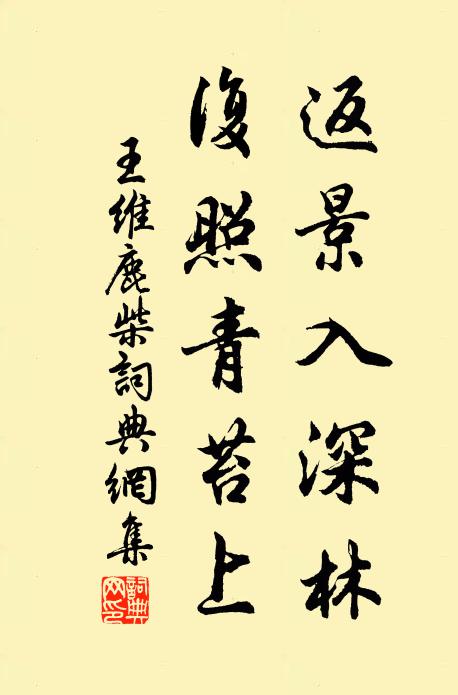 返景入深林
復照青苔上
王維鹿柴詞典網集
詞典網印